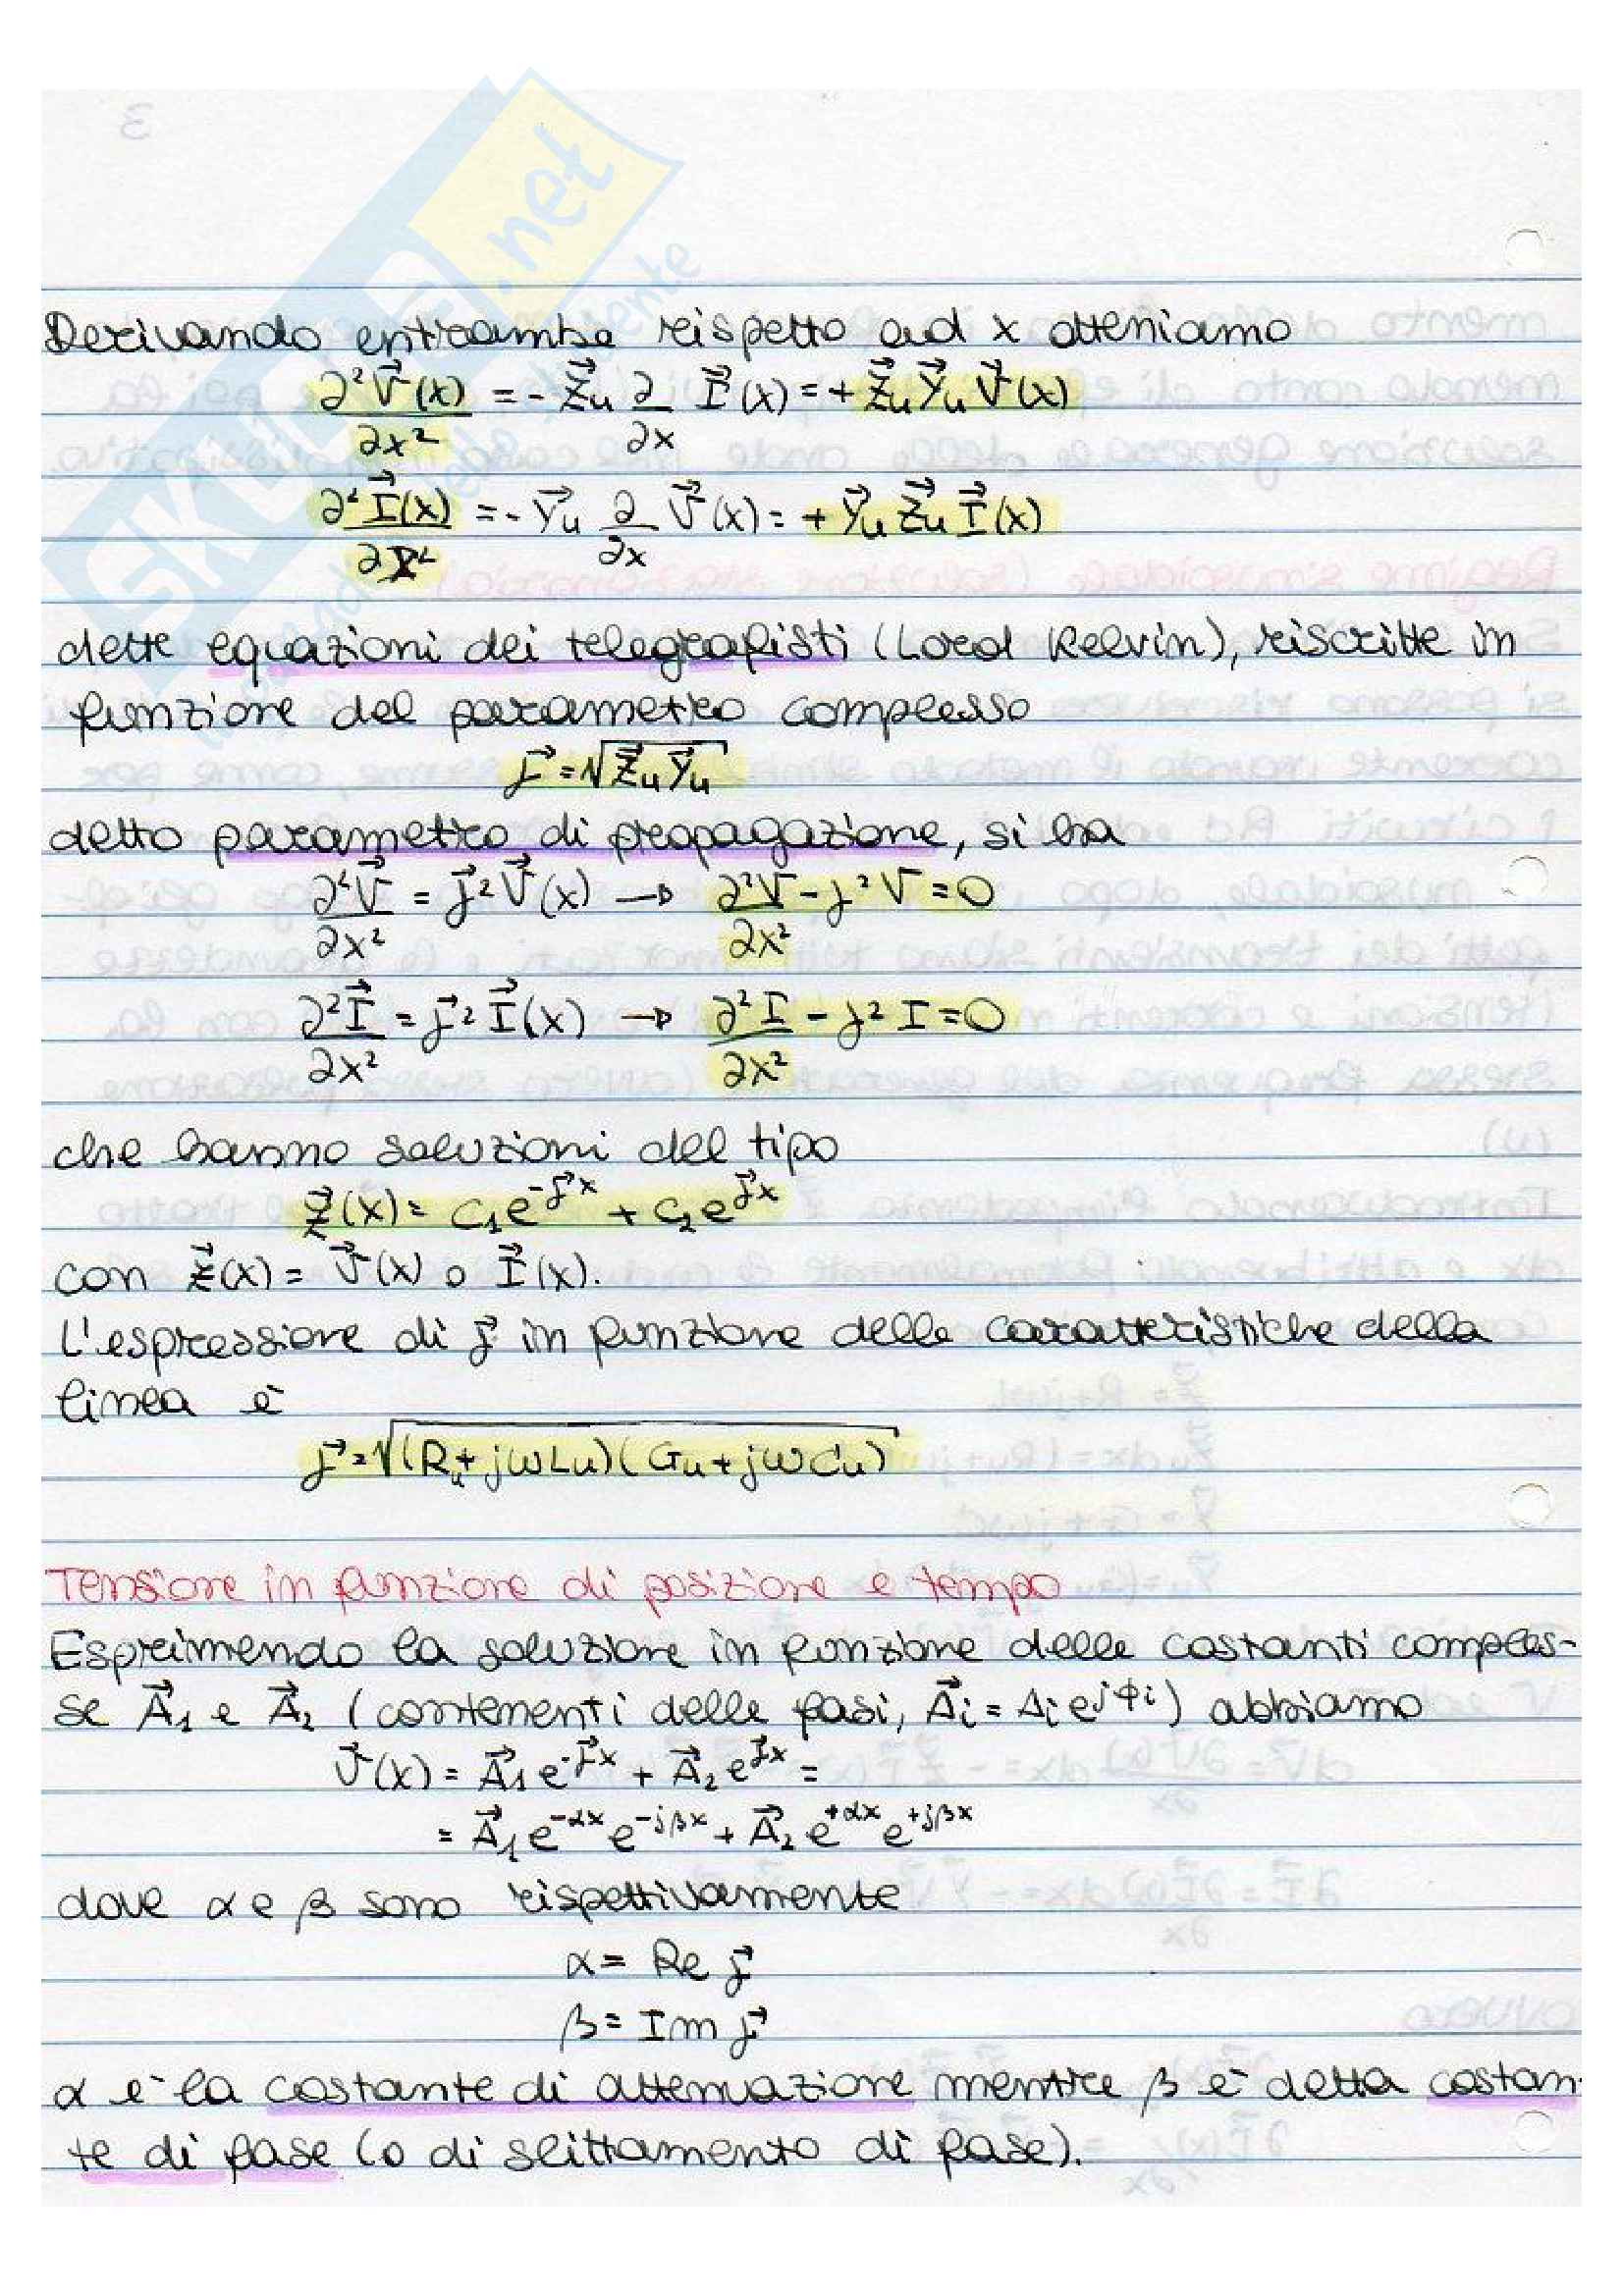 SKUOLA.net
Derivando entrambe rispetto ad x otteniamo
∂²V⃗(x)/∂x² = - Z⃗u ∂/∂x I⃗(x) = + Z⃗u Y⃗u V⃗(x)
∂²I⃗(x)/∂x² = - Y⃗u ∂/∂x V⃗(x) = + Y⃗u Z⃗u I⃗(x)
dette equazioni dei telegrafisti (Lord Kelvin), riscritte in
funzione del parametro complesso
γ⃗ = √(Z⃗u Y⃗u)
detto parametro di propagazione, si ha
∂²V⃗/∂x² = γ⃗² V⃗(x) → ∂²V/∂x² - γ² V = 0
∂²I⃗/∂x² = γ⃗² I⃗(x) → ∂²I/∂x² - γ² I = 0
che hanno soluzioni del tipo
z⃗(x) = c₁e^(-γ⃗x) + c₂e^(γ⃗x)
con z⃗(x) = V⃗(x) o I⃗(x).
L'espressione di γ⃗ in funzione delle caratteristiche della
linea è
γ⃗ = √((Ru + jωLu)(Gu + jωCu))
Tensione in funzione di posizione e tempo
Esprimendo la soluzione in funzione delle costanti comples-
se A⃗₁ e A⃗₂ (contenenti delle fasi, A⃗i = Ai e^(jϕi)) abbiamo
V⃗(x) = A⃗₁ e^(-γ⃗x) + A⃗₂ e^(γ⃗x) =
= A⃗₁ e^(-αx) e^(-jβx) + A⃗₂ e^(+αx) e^(+jβx)
dove α e β sono rispettivamente
α = Re γ⃗
β = Im γ⃗
α è la costante di attenuazione mentre β è detta costan-
te di fase (o di slittamento di fase).